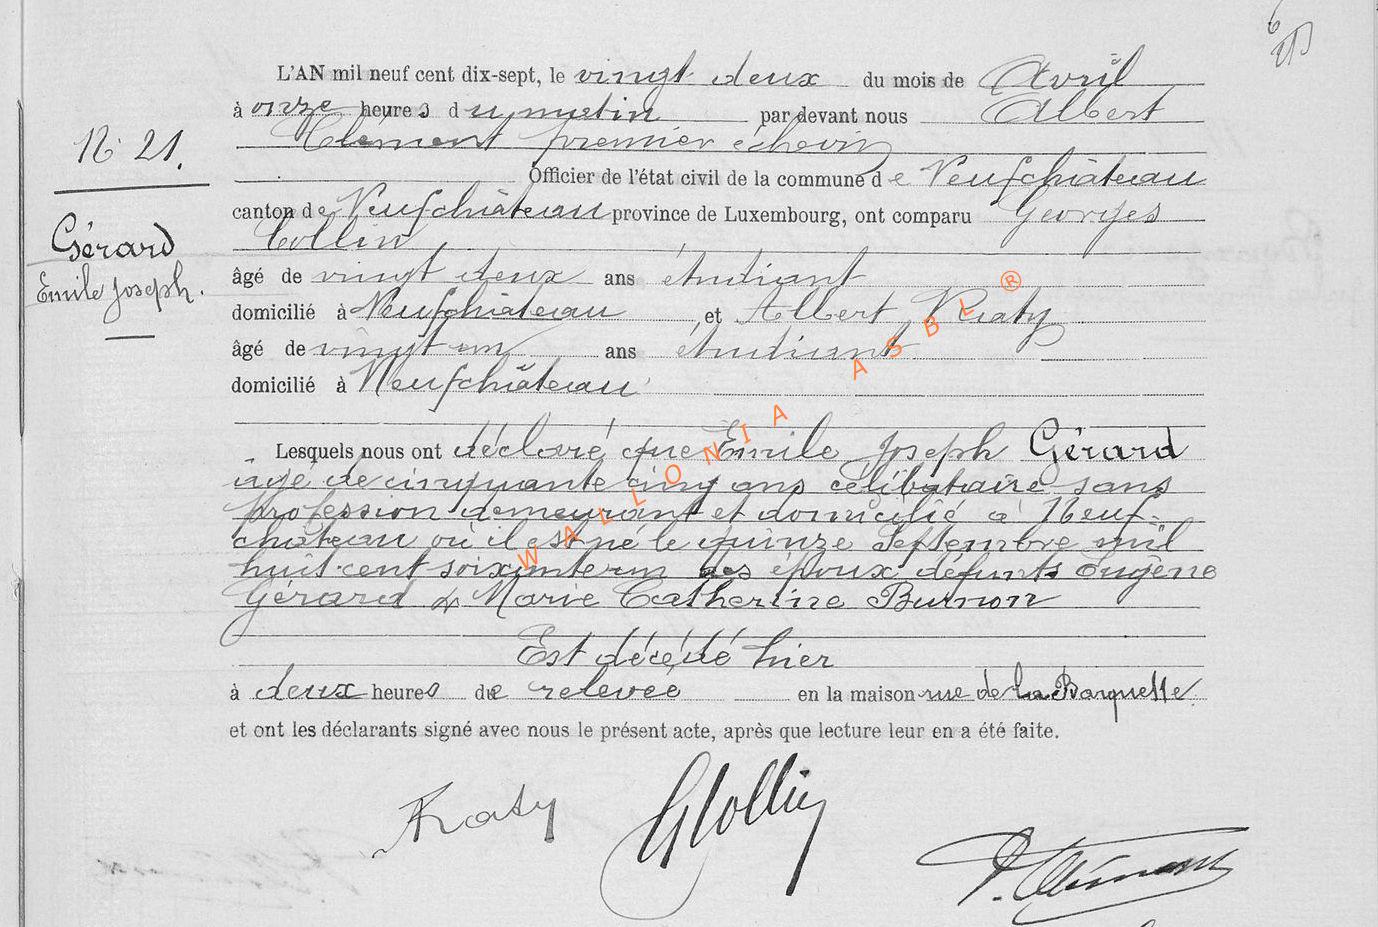 6
L'AN mil neuf cent dix-sept, le vingt deux du mois de Avril
à onze heures du matin par devant nous Albert
Clément premier échevin
Officier de l'état civil de la commune de Neufchâteau
canton de Neufchâteau province de Luxembourg, ont comparu Georges
Collin,
âgé de vingt deux ans étudiant
domicilié à Neufchâteau et Albert Raty
âgé de vingt un ans étudiant
domicilié à Neufchâteau
Lesquels nous ont déclaré que Emile Joseph Gérard
âgé de cinquante cinq ans célibataire sans
profession demeurant et domicilié à Neuf-
château où il est né le quinze Septembre mil
huit cent soixante un des époux défunts Eugène
Gérard & Marie Catherine Burnon
Est décédé hier
à deux heures de relevée en la maison rue de la Barquette.
et ont les déclarants signé avec nous le présent acte, après que lecture leur en a été faite.
N° 21.
Gérard
Emile Joseph.
ARaty
GCollin
Clément
WALLONIA ASBL ®